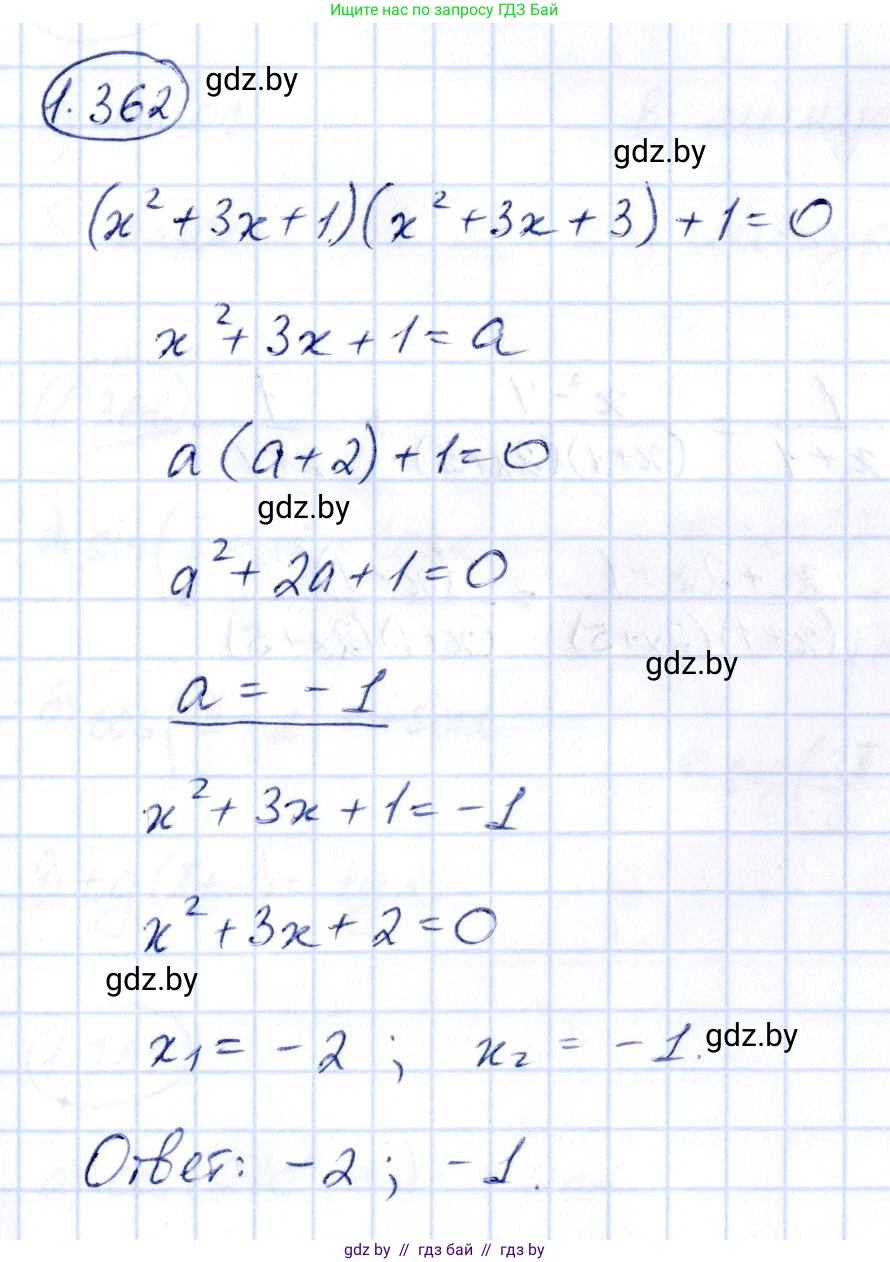 Ищите нас по запросу ГДЗ Бай
1.362 gdz.by
gdz.by
(x² + 3x + 1)(x² + 3x + 3) + 1 = 0
x² + 3x + 1 = a
a (a + 2) + 1 = 0
gdz.by
a² + 2a + 1 = 0
gdz.by
a = - 1
x² + 3x + 1 = - 1
x² + 3x + 2 = 0
gdz.by
x₁ = - 2 ; x₂ = - 1. gdz.by
Ответ: - 2 ; - 1.
gdz by // гдз бай // гдз by